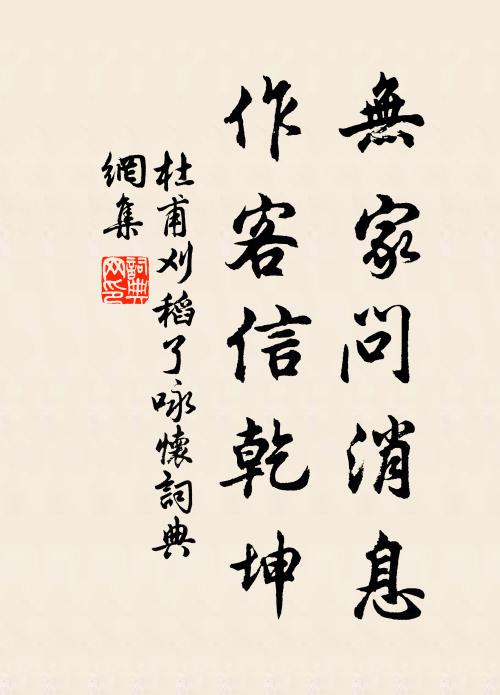 無家問消息
作客信乾坤
杜甫刈稻了咏懷詞典
網集
詞典
网印